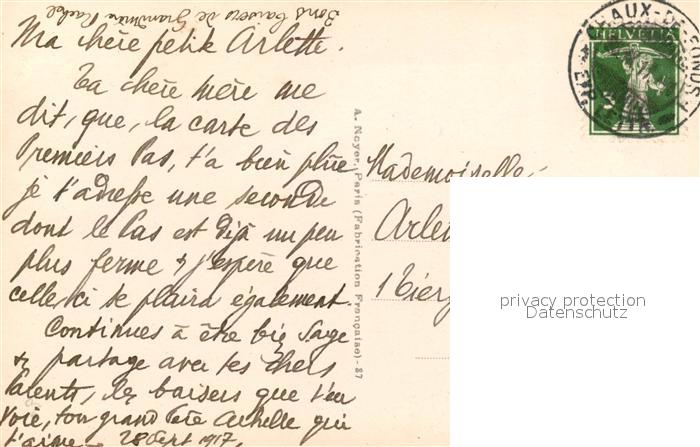 Bons baisers de Grand'mère Rachel
Ma chère petite Arlette.
Ta chère mère me
dit, que, la carte des
Premiers Pas, t'a bien plûe
je t'adresse une seconde
dont le Pas est déjà un peu
plus ferme & j'espère que
celle-ci te plaira également.
Continues à être big sage
& partage avec tes chers
Parents, les baisers que t'en
voie, ton grand Père Achille qui
t'aime - 28 Sept 1917.
A. Noyer, Paris (Fabrication Française) - 37
Mademoiselle
Arle
HELVETIA
CHAUX-DE-FONDS
privacy protection
Datenschutz